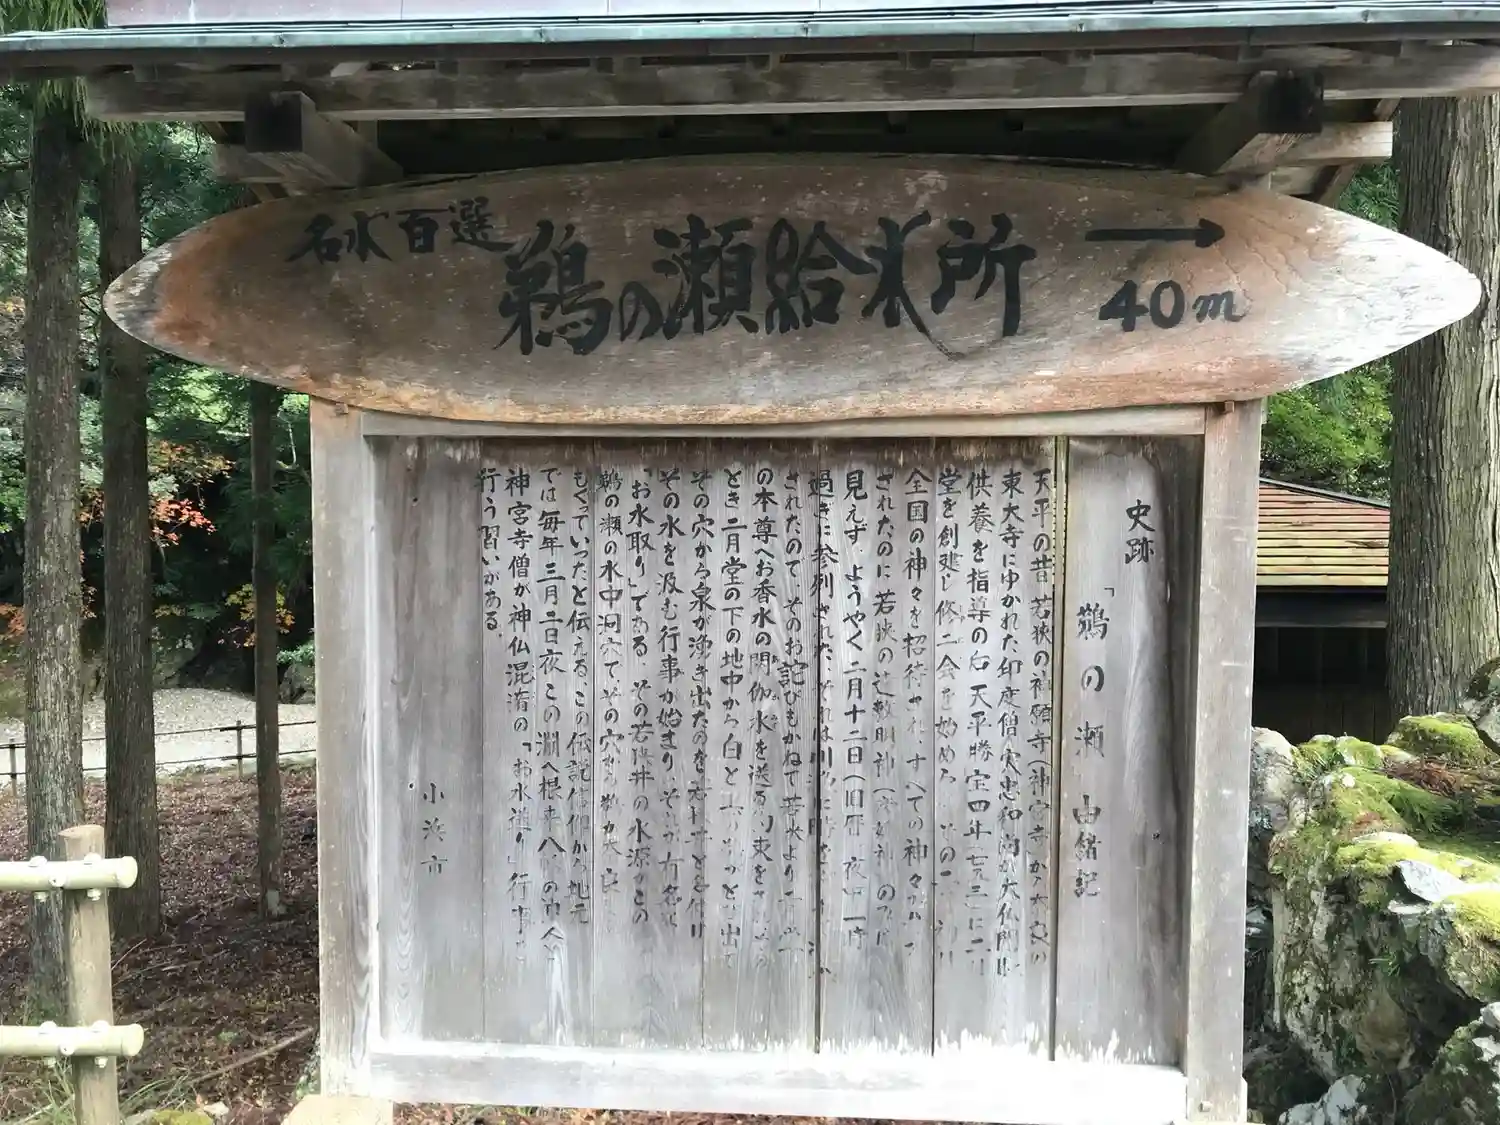 名水百選
鵜の瀬給水所
→
40m
史跡
「鵜の瀬 由緒記
天平の昔 若狭の神願寺(神宮寺)から奈良の
東大寺にゆかれた印度僧 実忠和尚が大仏開眼
供養を指導の后 天平勝宝四年(七五二)に二月
堂を創建し修二会を始められ その二月初日
全国の神々を招待され、すべての神々が
されたのに 若狭の遠敷明神(
見えず、ようやく二月十二日(旧暦)夜中一時
過ぎに参列された、それは川
されたので、そのお詫びもかねて若狭より二月堂
の本尊へお香水の閼伽水を送る約束をされ
とき 二月堂の下の地中から白と黒の が出て
その穴から泉が湧き出たのを若狭井と名付け
その水を汲む行事が始まり、それが有名な
「お水取り」である、その若狭井の水源がこの
鵜の瀬の水中洞穴で、その穴から鵜が奈良
もぐっていったと伝える、この伝説信仰から地元
では毎年三月二日夜 この淵へ根来八幡の
神宮寺僧が神仏混淆の「お水送り」行事を
行う習いがある、
小浜市